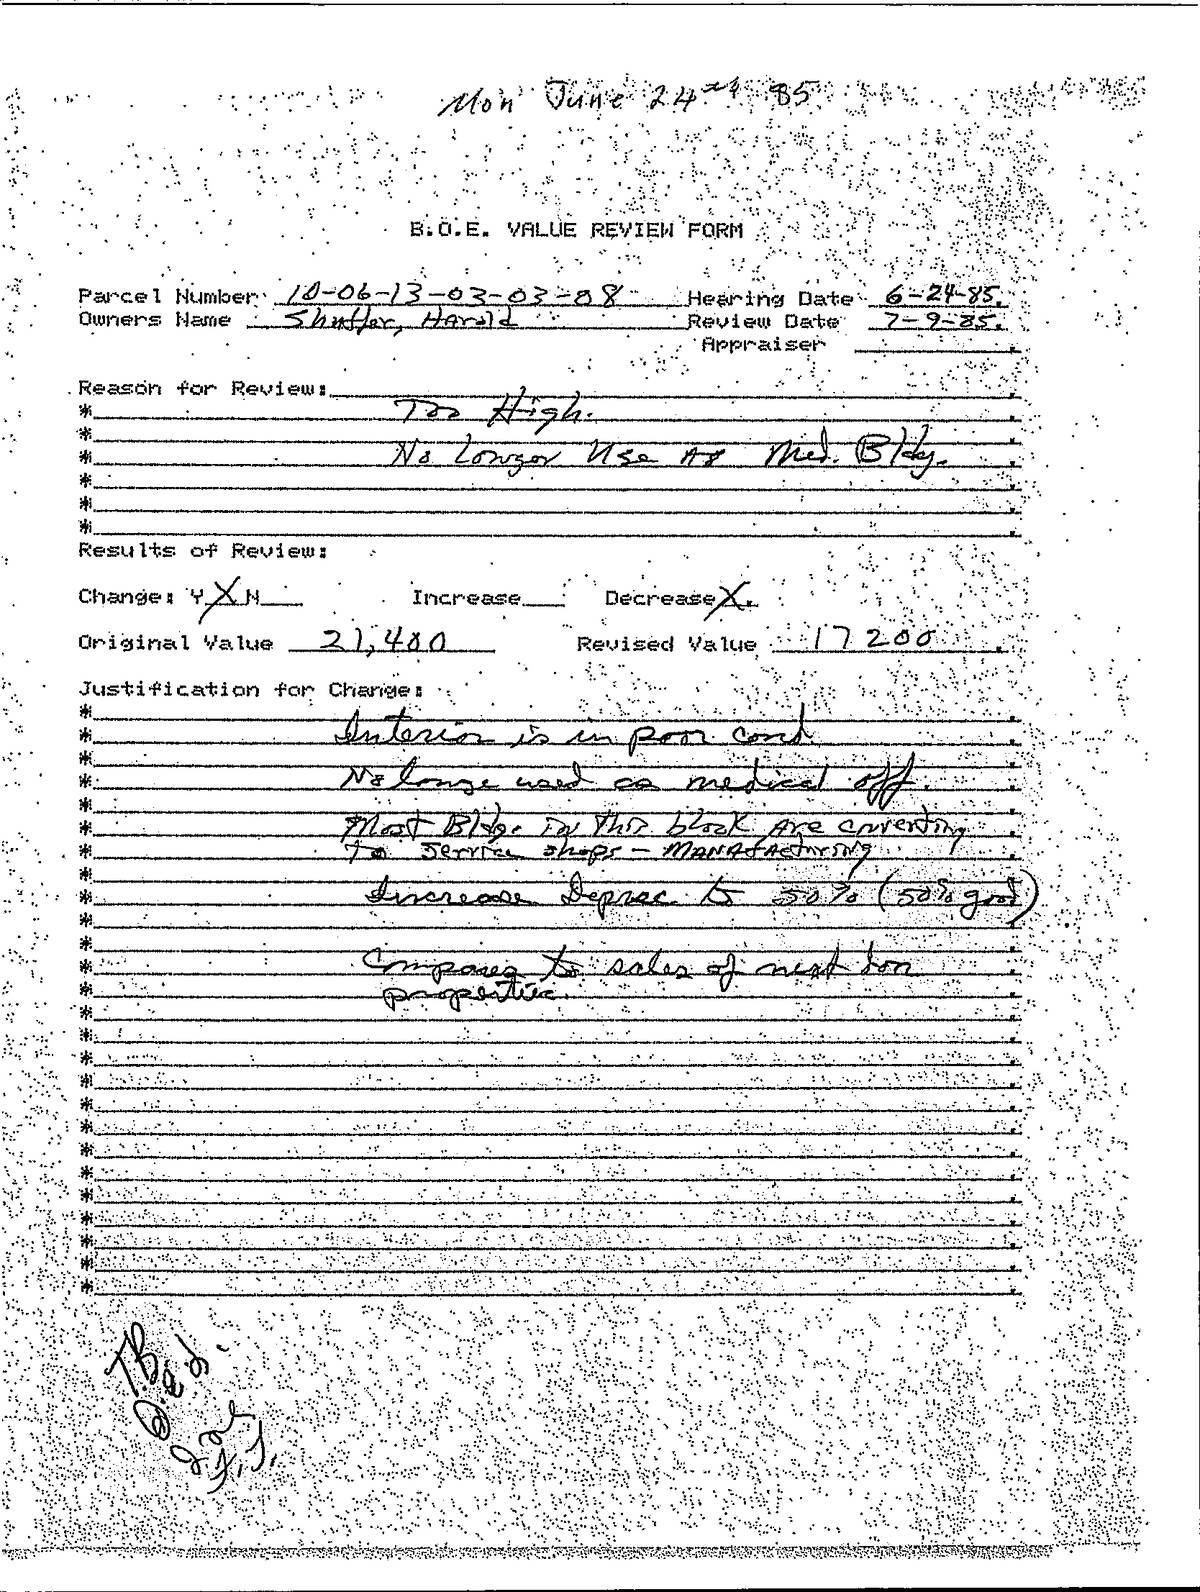 Mon June 24th 85
B.O.E. VALUE REVIEW FORM
Parcel Number 10-06-13-03-03-08 Hearing Date 6-24-85.
Owners Name Harold Review Date 7-9-85.
Appraiser
Reason for Review:
* Too High.
*
* No Longer Use As Med. Bldg.
*
*
*
Results of Review:
Change: Y X N Increase Decrease X.
Original Value 21,400 Revised Value 17200
Justification for Change:
*
* Interior is in poor cond
*
* No longe used as medical off.
*
* Most Bldg. in this block are converting
* to service shops - MANAFActuring
*
* Increase Deprec to 50% (50% good)
*
*
* Compares to sales of next
* properties.
*
*
*
*
*
*
*
*
*
*
*
*
*
T.B